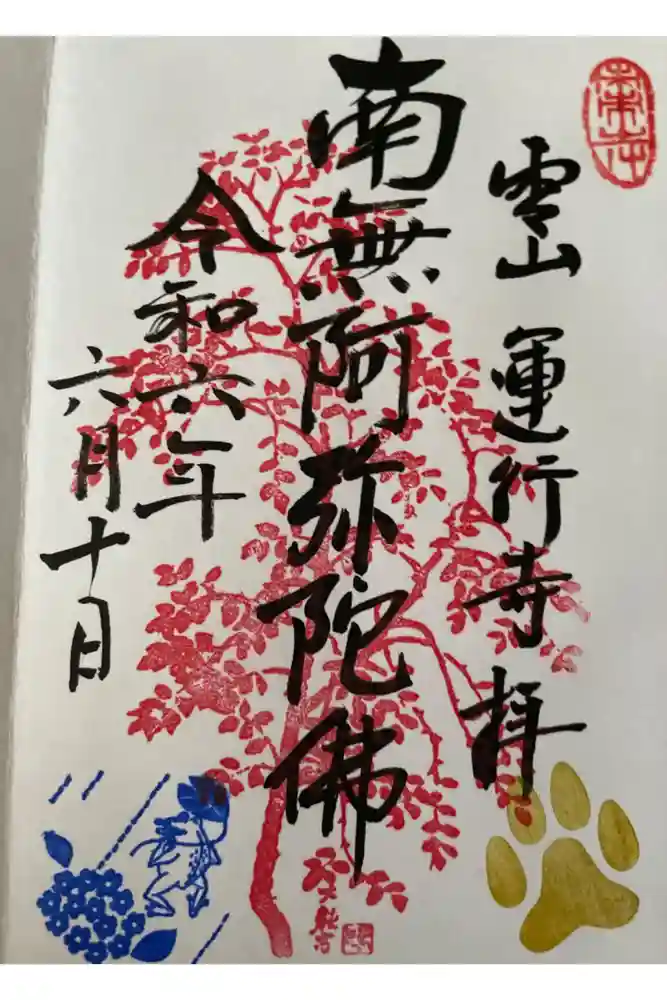 霊山 運行寺 拝
南無阿弥陀佛
令和六年
六月十日